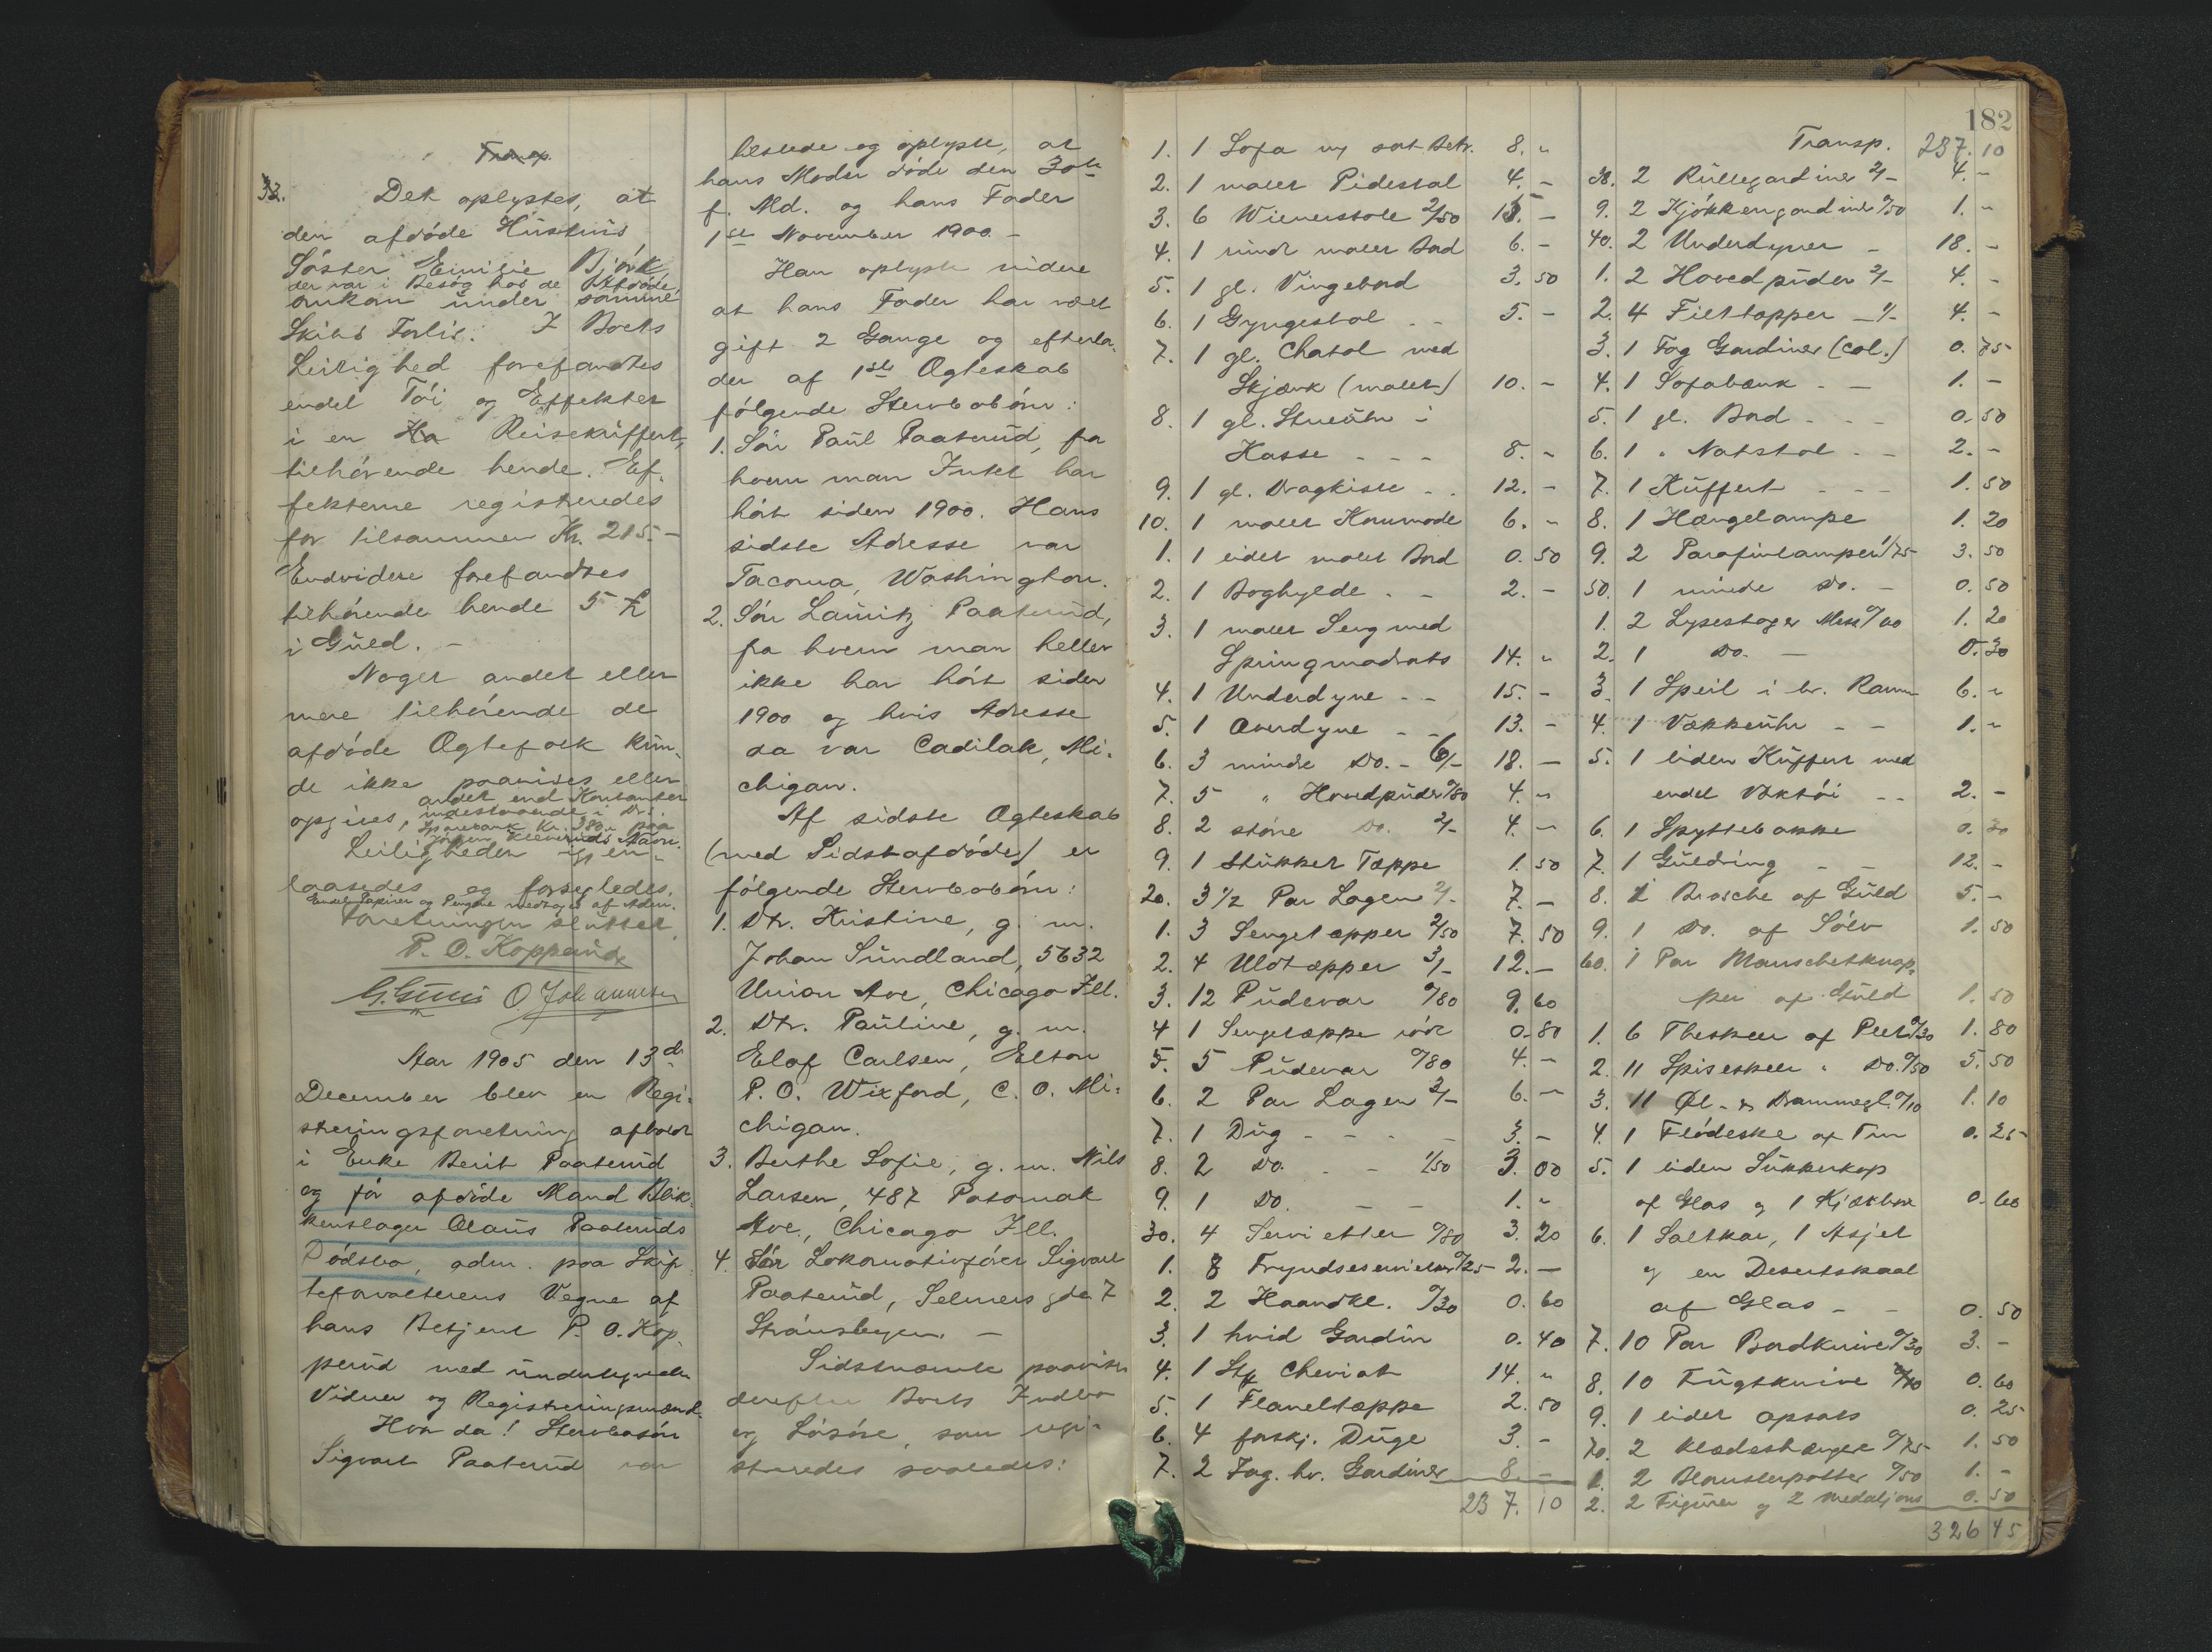 Transp.
32. Det oplystes, at
den afdöde Hustrus
Söster Emilie Bjørk,
der var i Besög hos de Afdöde,
omkom under samme
Skibs Forlis. I Boets
Leilighed forefandtes
endel Töi og Effekter
i en Reisekuffert,
tilhörende hende. Ef-
fekterne registreredes
for tilsammen Kr. 215.-
Endvidere forefandtes
tilhörende hende 5 £
i Guld. -
Noget andet eller
mere tilhörende de
afdöde Ægtefolk kun-
de ikke paavises eller
opgives, andet end Kontanter
indestaaende i Dr.
Sparebank Kr. 380.- paa
Navn.
Leiligheden igjen-
laasedes og forsegledes.
Endel Papirer og Pengene medtoges af Adm.
Forretningen sluttet.
P. O. Kopperud
O Johannesen
Aar 1905 den 13de
December blev en Regi-
streringsforretning afholdt
i Enke Berit Paaterud
og för afdöde Mand Blik-
kenslager Olaus Paateruds
Dödsbo, adm. paa Skif-
teforvalterens Vegne af
hans Betjent P. O. Kop-
perud med undertegnede
Vidner og Registreringsmænd.
Hvor da! Stervbosön
Sigvart Paaterud var
tilstede og oplyste, at
hans Moder döde den 30te
f. Md. og hans Fader
1ste November 1900. -
Han oplyste videre
at hans Fader har været
gift 2 Gange og efterla-
der af 1ste Ægteskab
fölgende Stervboбörn:
1. Sön Paul Paaterud, fra
hvem man Intet har
hört siden 1900. Hans
sidste Adresse var
Tacoma, Washington.
2. Sön Lauritz Paaterud,
fra hvem man heller
ikke har hört siden
1900 og hvis Adresse
da var Cadilak, Mi-
chigan.
Af sidste Ægteskab
(med Sidstafdöde) er
fölgende Stervbobörn:
1. Dtr. Kristine, g. m.
Johan Sundland, 5632
Union Ave, Chicago Ill.
2. Dtr. Pauline, g. m.
Elof Carlsen, Elton
P. O. Wixford, C. O. Mi-
chigan.
3. Berthe Sofie, g. m. Nils
Larsen, 487 Potomak
Ave., Chicago Ill.
4. Sön Lokomotivförer Sigvart
Paaterud, Selmers gde 7
Strömsbyen. -
Sidstnævnte paaviste
derefter Boets Indbo
og Lösöre, som regi-
streredes saaledes:
1. 1 Sofa m sort Betr. 8. "
2. 1 malet Pidestal 4. -
3. 6 Wienerstole 2/50 15. -
4. 1 rundt malet Bord 6. -
5. 1 gl. Vingebord 3. 50
6. 1 Gyngestol - - 5. -
7. 1 gl. Chatol med
Skjænk (malet) 10. -
8. 1 gl. Stueuhr i
Kasse - - - 8. "
9. 1 gl. Dragkiste - - 12. -
10. 1 malet Kommode 6. "
1. 1 lidet malet Bord 0. 50
2. 1 Boghylde - - 2. -
3. 1 malet Seng med
Springmadrats 14. "
4. 1 Underdyne - - 15. -
5. 1 Overdyne - - 13. -
6. 3 mindre Do. - 6/- 18. -
7. 5 " Hovedpuder 0/80 4. "
8. 2 större Do. 2/- 4. -
9. 1 Stukket Tæppe 1. 50
20. 3 1/2 Par Lagen 2/- 7. -
1. 3 Sengetæpper 2/50 7. 50
2. 4 Uldtæpper 3/- 12. -
3. 12 Pudevar 0/80 9. 60
4 1 Sengetæppe rödt 0. 80
5. 5 Pudevar 0/80 4. -
6. 2 Par Lagen 3/- 6. -
7. 1 Dug - - - - 3. -
8. 2 Do. - - 1/50 3. 00
9. 1 Do. - - 1. "
30. 4 Servietter 0/80 3. 20
1. 8 Fryndseservietter 0/25 2. -
2. 2 Haandkl. 0/30 0. 60
3. 1 hvid Gardin 0. 40
4. 1 Stk Cheviot 14. "
5. 1 Flaneltæppe 2. 50
6. 4 forskj. Duge 3. -
7. 2 Fag. hv. Gardiner 8. -
237. 10
182
Transp. 237. 10
38. 2 Rullegardiner 2/- 4. -
9. 2 Kjökkengardiner 0/50 1. "
40. 2 Underdyner - 18. -
1. 2 Hovedpuder 2/- 4. -
2. 4 Filttæpper 1/- 4. -
3. 1 Fag Gardiner (col.) 0. 75
4. 1 Sofabænk - - 1. -
5. 1 gl. Bord - - - 0. 50
6. 1 " Natstol - - 2. -
7. 1 Kuffert - - - 1. 50
8. 1 Hængelampe 1. 20
9. 2 Parafinlamper 1/75 3. 50
50. 1 mindre Do. - 0. 50
1. 2 Lysestager Mess. 0/60 1. 20
2. 1 Do. - 0. 30
3. 1 Speil i br. Ramme 6. "
4. 1 Vækkeuhr - - 1. "
5. 1 liden Kuffert med
endel Værktöi - - 2. -
6. 1 Spyttebakke 0. 30
7. 1 Guldring - - 12. -
8. 1 Brosche af Guld 5. -
9. 1 Do. af Sölv 1. 50
60. 1 Par Manschetknap-
per af Guld 1. 50
1. 6 Theskeer af Plet 0/30 1. 80
2. 11 Spiseskeer " Do. 0/50 5. 50
3. 11 Øl- & Drammegl. 0/10 1. 10
4. 1 Flödeske af Tin 0. 25
5. 1 liden Sukkerkop
af Glas og 1 0. 60
6. 1 Saltkar, 1 Asjet
og en Desertskaal
af Glas - - 0. 50
7. 10 Par Bordknive 0/30 3. -
8. 10 Frugtknive 0. 60
9. 1 lidet Opsats 0. 25
70. 2 Klædeshænger 0/75 1. 50
1. 2 Blomsterpotter 0/50 1. -
2. 2 Figurer og 2 Medaljons 0. 50
326 45